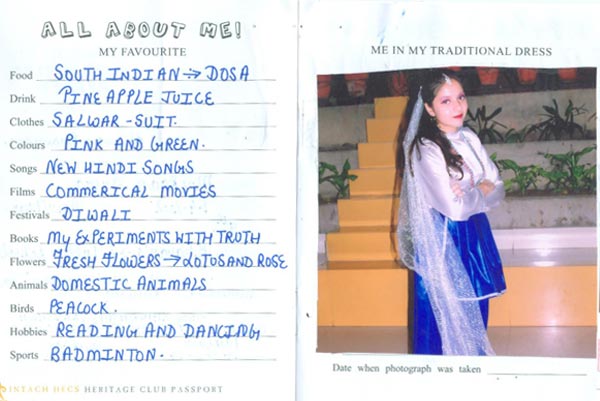 ALL ABOUT ME!
MY FAVOURITE
Food SOUTH INDIAN → DOSA
Drink PINE APPLE JUICE
Clothes SALWAR - SUIT.
Colours PINK AND GREEN.
Songs NEW HINDI SONGS
Films COMMERICAL MOVIES
Festivals DIWALI
Books MY EXPERIMENTS WITH TRUTH
Flowers FRESH FLOWERS → LOTUS AND ROSE
Animals DOMESTIC ANIMALS
Birds PEACOCK.
Hobbies READING AND DANCING
Sports BADMINTON.
INTACH HECS HERITAGE CLUB PASSPORT
ME IN MY TRADITIONAL DRESS
Date when photograph was taken